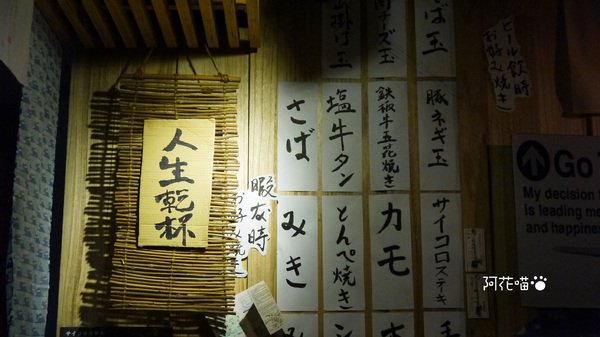 人生乾杯
暇な時
お好み焼き
さば
みき
み
塩牛タン
とんぺ焼き
ン
玉
ーズ玉
ば玉
鉄板牛五花焼き
カモ
豚ネギ玉
サイコロステキ
ビール飲時
お好み焼き
Go
My decision
is leading me
and happiness
阿花喵